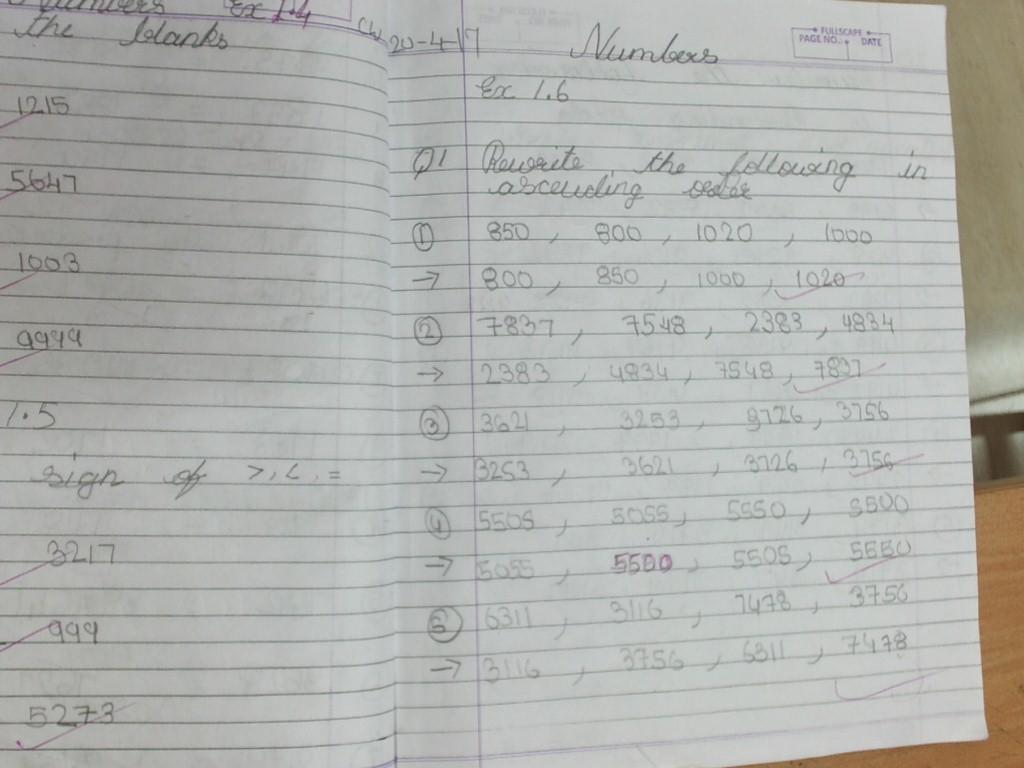 Ex 1.4
the blanks
1215
5647
1003
9999
1.5
sign of >, <, =
3217
999
5273
CW 20-4-17
Numbers
FULLSCAPE
PAGE NO. DATE
Ex 1.6
Q1 Rewrite the following in
ascending order
① 850, 800, 1020, 1000
→ 800, 850, 1000, 1020
② 7837, 7548, 2383, 4834
→ 2383, 4834, 7548, 7837
③ 3621, 3253, 3726, 3756
→ 3253, 3621, 3726, 3756
④ 5505, 5055, 5550, 5500
→ 5055, 5500, 5505, 5550
⑤ 6311, 3116, 7478, 3756
→ 3116, 3756, 6311, 7478